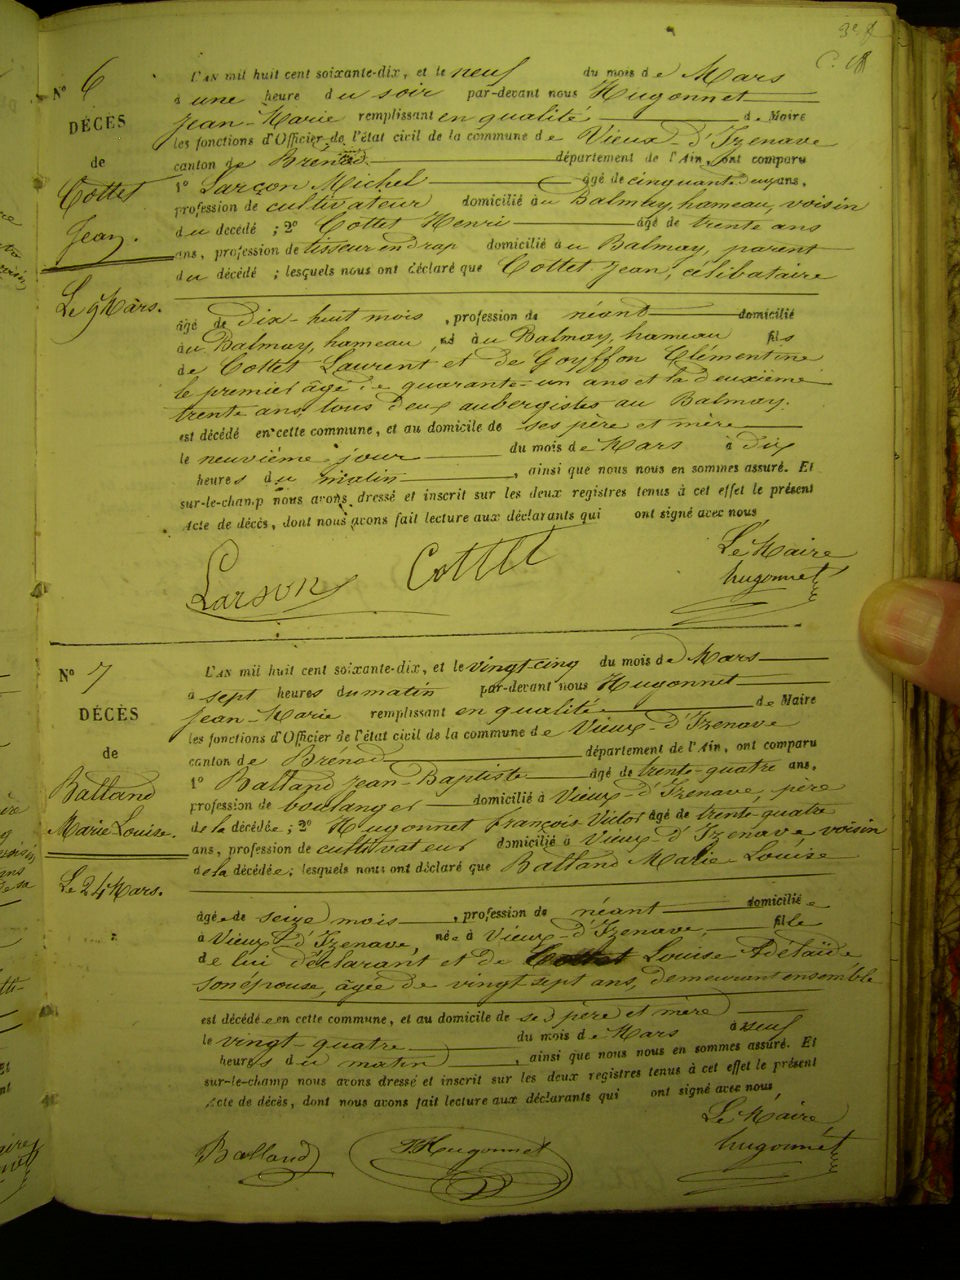 3e f
C. 18
N° 6
DÉCÈS
de
Cottet
Jean.
Le 9 Mars.
L'AN mil huit cent soixante-dix, et le neuf du mois de Mars
à une heure du soir par-devant nous Hugonnet
Jean-Marie remplissant en qualité de Maire
les fonctions d'Officier de l'état civil de la commune de Vieux-d'Izenave
canton de Brénod département de l'Ain, sont comparu
1° Larçon Michel âgé de cinquante deux ans,
profession de cultivateur domicilié au Balmay, hameau, voisin
du décédé ; 2° Cottet Henri âgé de trente ans
ans, profession de tisseur en drap domicilié au Balmay, parent
du décédé ; lesquels nous ont déclaré que Cottet Jean, célibataire
âgé de dix-huit mois , profession de néant domicilié
au Balmay, hameau , né au Balmay, hameau fils
de Cottet Laurent et de Goyffon Clémentine
le premier âgé de quarante-un ans et la deuxième
trente ans, tous deux aubergistes au Balmay.
est décédé en cette commune, et au domicile de ses père et mère
le neuvième jour du mois de Mars à dix
heures du matin , ainsi que nous nous en sommes assuré. Et
sur-le-champ nous avons dressé et inscrit sur les deux registres tenus à cet effet le présent
Acte de décès, dont nous avons fait lecture aux déclarants qui ont signé avec nous
Le Maire
Larson Cottet hugonnet
N° 7
DÉCÈS
de
Balland
Marie Louise.
Le 24 Mars.
L'AN mil huit cent soixante-dix, et le vingt-cinq du mois de Mars
à sept heures du matin par-devant nous Hugonnet
Jean-Marie remplissant en qualité de Maire
les fonctions d'Officier de l'état civil de la commune de Vieux-d'Izenave
canton de Brénod département de l'Ain, ont comparu
1° Balland Jean-Baptiste âgé de trente-quatre ans,
profession de boulanger domicilié à Vieux-d'Izenave, père
de la décédée ; 2° Hugonnet françois Victor âgé de trente-quatre
ans, profession de cultivateur domicilié à Vieux-d'Izenave voisin
de la décédée ; lesquels nous ont déclaré que Balland Marie Louise
âgée de seize mois , profession de néant domiciliée
à Vieux-d'Izenave, née à Vieux-d'Izenave, fille
de lui déclarant et de Louise Adélaïde
son épouse, âgée de vingt sept ans, demeurant ensemble
est décédée en cette commune, et au domicile de ses père et mère
le vingt-quatre du mois de Mars à neuf
heures du matin , ainsi que nous nous en sommes assuré. Et
sur-le-champ nous avons dressé et inscrit sur les deux registres tenus à cet effet le présent
Acte de décès, dont nous avons fait lecture aux déclarants qui ont signé avec nous
Le Maire
Balland Hugonnet hugonnet